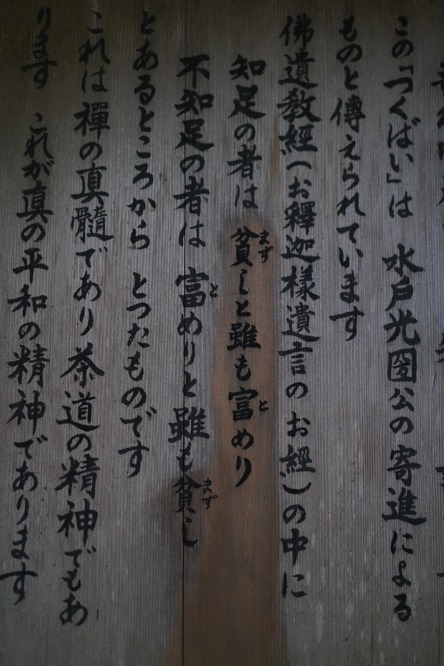 この「つくばい」は 水戸光圀公の寄進による
ものと傳えられています
佛遺教經(お釋迦様遺言のお經)の中に
知足の者は 貧しと雖も富めり
まず と
不知足の者は 富めりと雖も貧し
と まず
とあるところから とつたものです
これは禪の真髓であり 茶道の精神でもあ
ります これが真の平和の精神であります